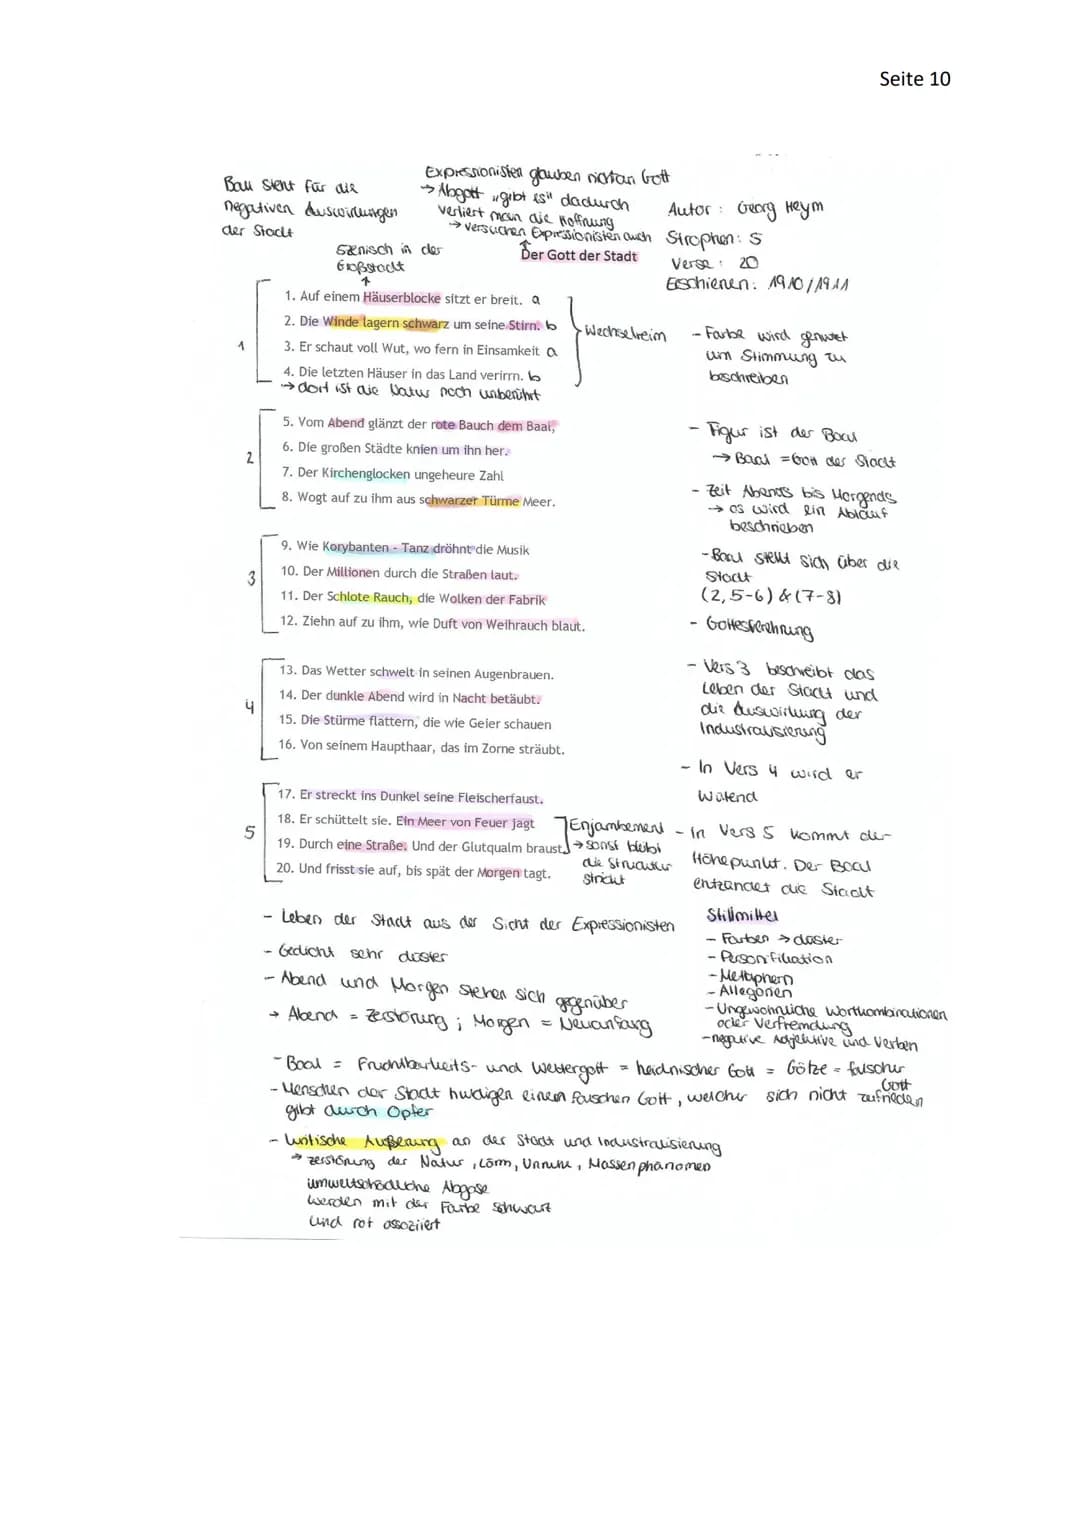 Seite 10
Expressionisten glauben nicht an Gott
→ Abgott „gibt es" dadurch
verliert man die Hoffnung
→ versuchen Expressionisten auch
Baal steht für die
negativen Auswirkungen
der Stadt
Szenisch in der
Großstadt
Der Gott der Stadt
Autor: Georg Heym
Strophen: 5
Verse: 20
Erschienen: 1910/1911
1
1. Auf einem Häuserblocke sitzt er breit. a
2. Die Winde lagern schwarz um seine Stirn. b
3. Er schaut voll Wut, wo fern in Einsamkeit a
4. Die letzten Häuser in das Land verirrn. b
→ dort ist die Natur noch unberührt
Wechselreim
- Farbe wird genutzt
um Stimmung zu
beschreiben
2
5. Vom Abend glänzt der rote Bauch dem Baal,
6. Die großen Städte knien um ihn her.
7. Der Kirchenglocken ungeheure Zahl
8. Wogt auf zu ihm aus schwarzer Türme Meer.
- Figur ist der Baal
→ Baal = Gott der Stadt
- Zeit Abends bis Morgends
→ es wird ein Ablauf
beschrieben
3
9. Wie Korybanten - Tanz dröhnt die Musik
10. Der Millionen durch die Straßen laut.
11. Der Schlote Rauch, die Wolken der Fabrik
12. Ziehn auf zu ihm, wie Duft von Weihrauch blaut.
- Baal stellt sich über die
Stadt
(2,5-6) & (7-8)
- Gottesverehrung
4
13. Das Wetter schwelt in seinen Augenbrauen.
14. Der dunkle Abend wird in Nacht betäubt.
15. Die Stürme flattern, die wie Geier schauen
16. Von seinem Haupthaar, das im Zorne sträubt.
- Vers 3 beschreibt das
Leben der Stadt und
die Auswirkung der
Industralisierung
- In Vers 4 wird er
wütend
5
17. Er streckt ins Dunkel seine Fleischerfaust.
18. Er schüttelt sie. Ein Meer von Feuer jagt
19. Durch eine Straße. Und der Glutqualm braust
20. Und frisst sie auf, bis spät der Morgen tagt.
Enjambement
→ sonst bleibt
die Struktur
strickt
- In Vers 5 kommt der
Höhepunkt. Der Baal
entzündet die Stadt
- Leben der Stadt aus der Sicht der Expressionisten
- Gedicht sehr düster
- Abend und Morgen stehen sich gegenüber
→ Abend = Zerstörung ; Morgen = Neuanfang
Stillmittel
- Farben → düster
- Personifikation
- Metaphern
- Allegorien
- Ungewöhnliche Wortkombinationen
oder Verfremdung
- negative Adjektive und Verben
- Baal = Fruchtbarkeits- und Wettergott = heidnischer Gott = Götze = falscher
Gott
- Menschen der Stadt huldigen einem falschen Gott, welcher sich nicht zufrieden
gibt durch Opfer
- kritische Äußerung an der Stadt und Industralisierung
→ zerstörung der Natur, Lärm, Unruhe, Massenphänomen
umweltschädliche Abgase
werden mit der Farbe schwarz
und rot assoziiert